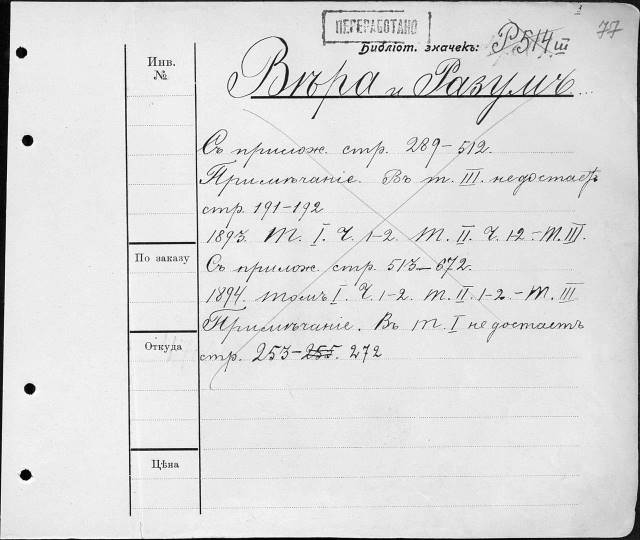 ПЕРЕРАБОТАНО
77
Библіот. значекъ: P 514 III
Инв.
№
Вѣра и Разумъ
Съ прилож. стр. 289-512.
Примѣчаніе. Въ т. III. недостаетъ
стр. 191-192
1893. Т. I. Ч. 1-2. Т. II. Ч. 1-2. - Т. III.
По заказу
Съ прилож. стр. 513-672.
1894. томъ I. Ч. 1-2. Т. II. 1-2. - Т. III
Примѣчаніе. Въ т. I недостаетъ
Откуда
стр. 253-255. 272
Цѣна